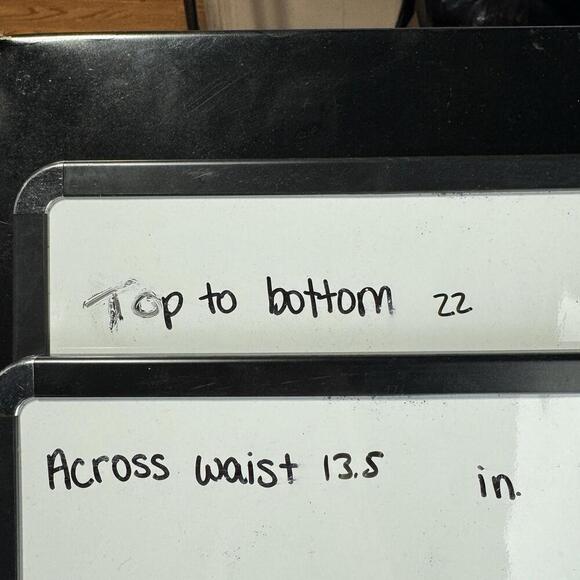 Top to bottom 22
Across waist 13.5 in.